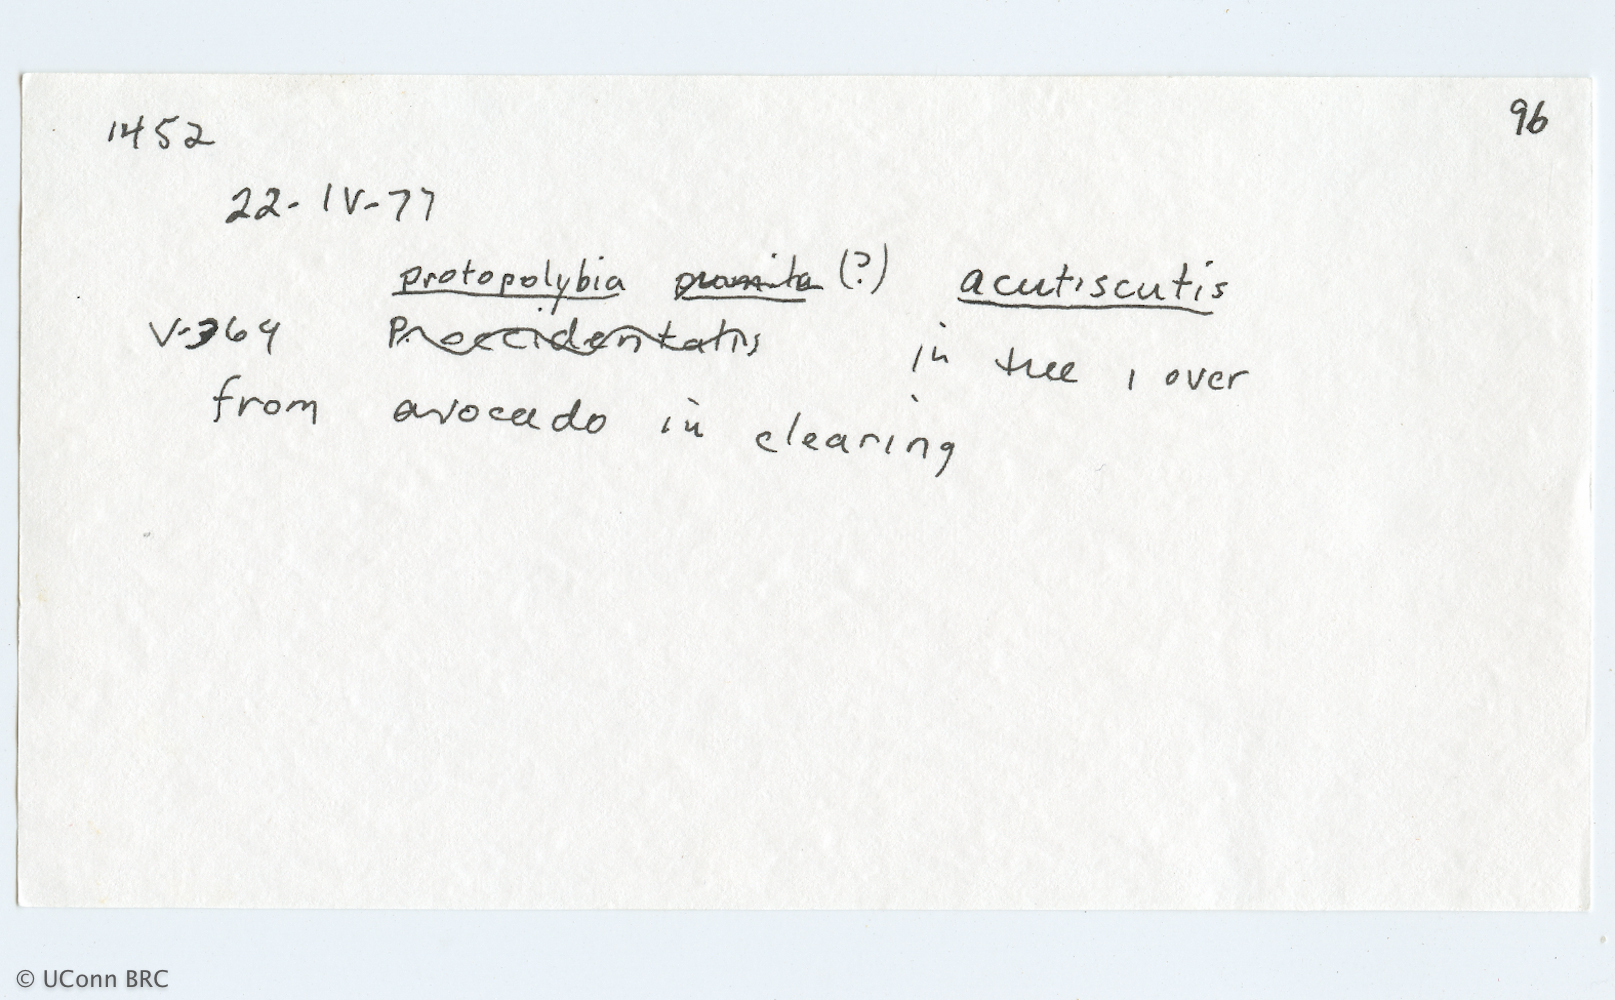 1452 96
22-IV-77
protopolybia pumila (?) acutiscutis
V-364 P. occidentalis in tree 1 over
from avocado in clearing
© UConn BRC